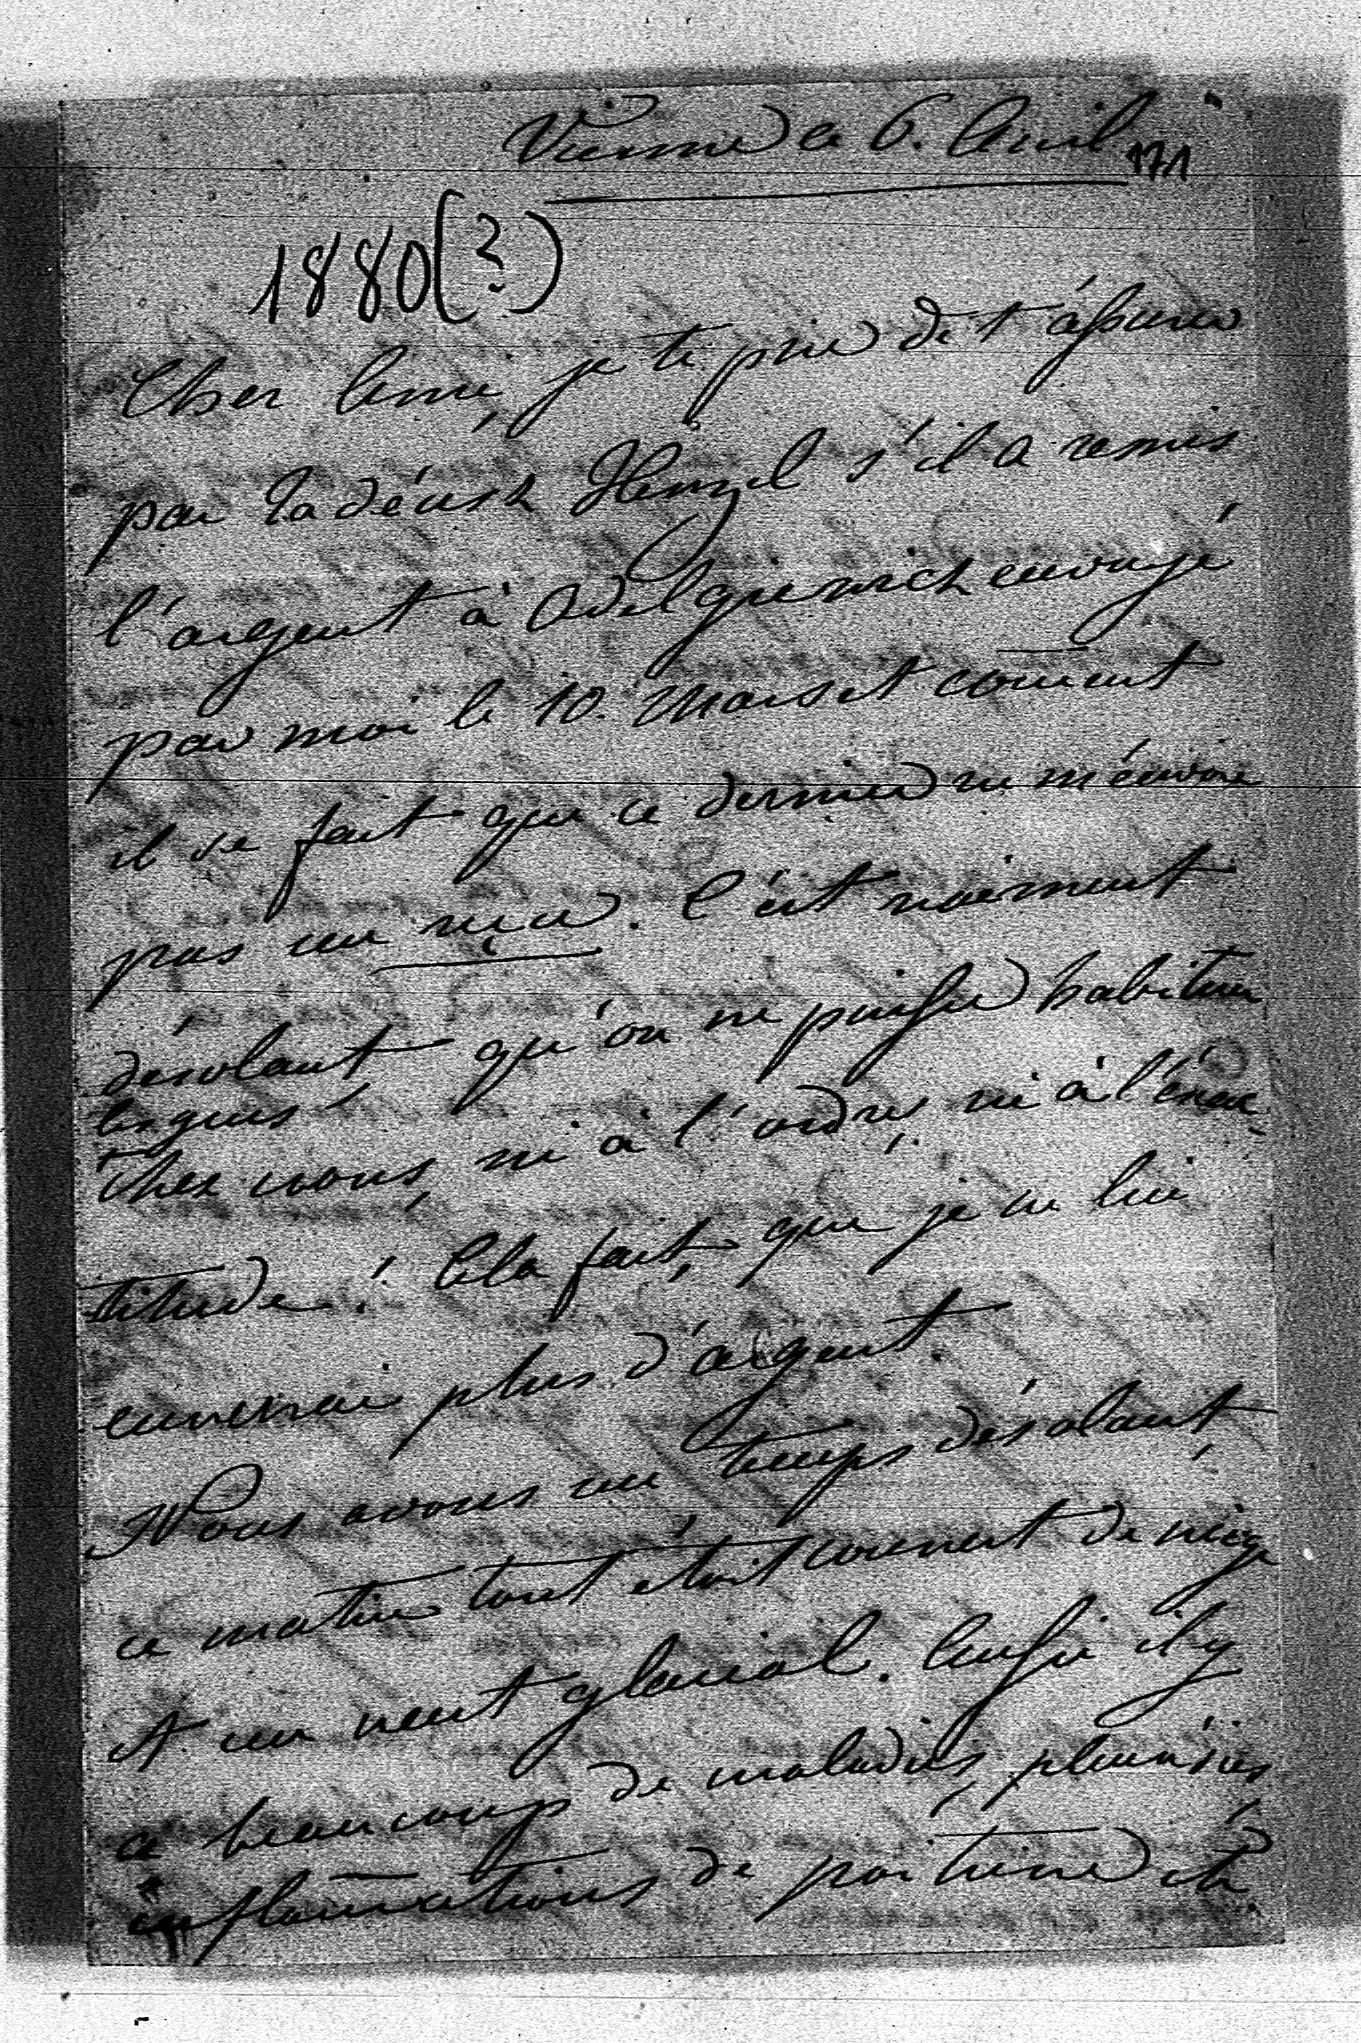 Vienne ce 6. Avril
171
1880(?)
Cher Ami, je te prie de t'assurer
par Tadéusz Henzel s'il a remis
l'argent à Odelgiewicz envoyé
par moi le 10. Mars et com̄ent
il se fait que ce dernier ne m'envoie
pas un reçu. C'est vraiment
désolant, qu'on ne puisse habituer
les gens
chez nous, ni à l'ordre, ni à l'exac-
titude! Cela fait, que je ne lui
enverrai plus d'argent.
Nous avons un temps désolant,
ce matin tout était couvert de neige
et un vent glacial. Aussi il y
a beaucoup de maladies, pleurésies
inflam̄ations de poitrine etc.